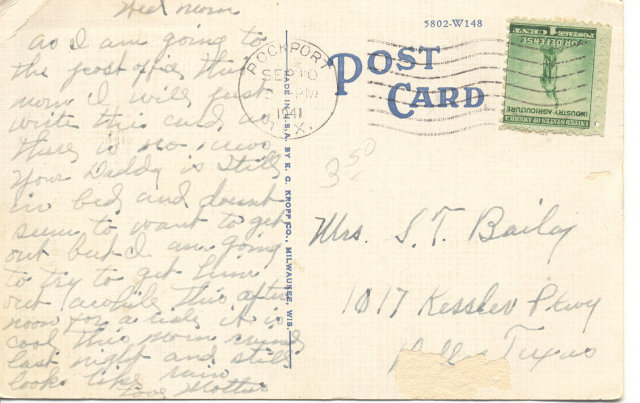 Wed morn
as I am going to
the post office this
morn I will just
write this card, as
there is no news
your Daddy is still
in bed and doesnt
seem to want to get
out but I am going
to try to get him
out awhile this after
noon for a ride it is
cool this morn
last night and still
looks like rain
Love Mother
5802-W148
POST
CARD
ROCKPORT
SEP 10
PM
1941
TEX.
MADE IN U.S.A. BY E. C. KROPP CO., MILWAUKEE, WIS.
UNITED STATES OF AMERICA
INDUSTRY AGRICULTURE
FOR DEFENSE
1 CENT
POSTAGE
3.50
Mrs. S. T. Bailey
1017 Kessler Pkwy
Dallas Texas